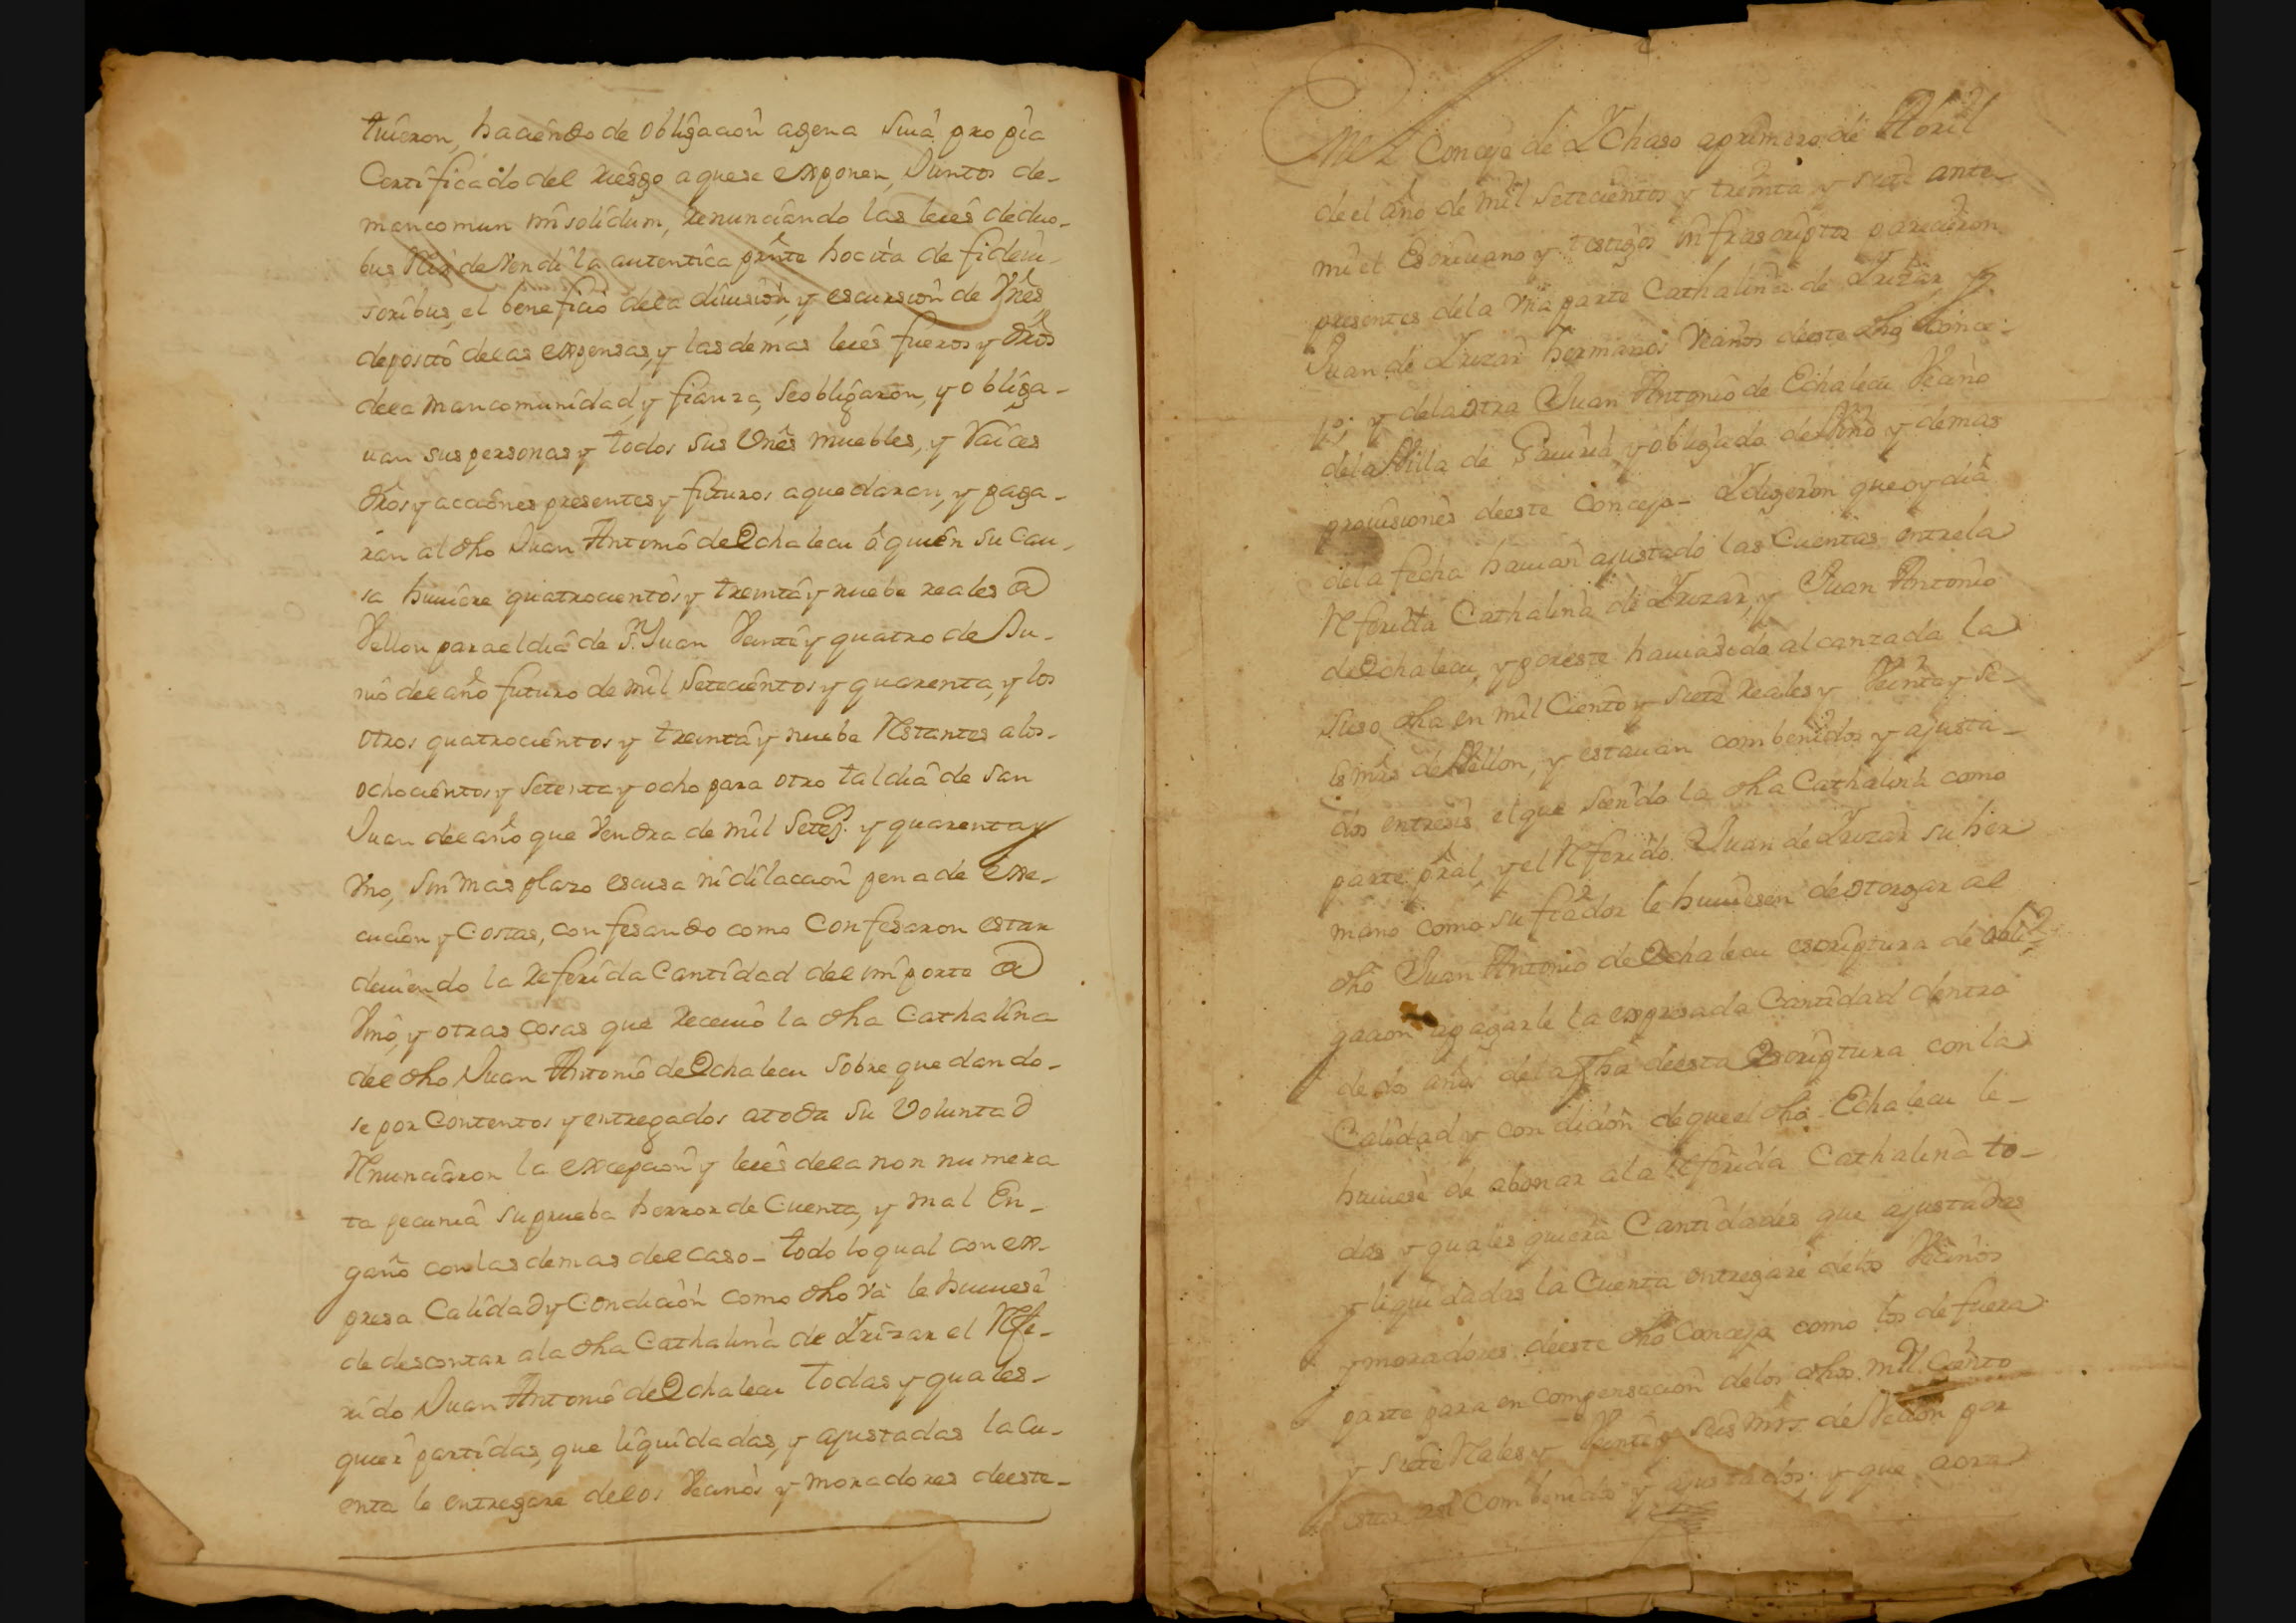 tuieron, haciendo de obligacion agena suia propia
Certificado del riesgo a que se exponen, Juntos de-
mancomun insolidum, renunciando las leies de duo-
bus Rex de vendi la autentica prnte hocita de fideiu-
soribus, el beneficio de la diuision, y escursion de Vnes
deposito de las expensas, y las demas leies fueros y dros
de la mancomunidad, y fianza, se obligaron, y obliga-
uan sus personas y todos sus Vnes muebles, y Raices
dros y acciones presentes y futuros a que daran, y paga-
ran al dho Juan Antonio de Echalecu ó quien su cau-
sa huuiere quatrocientos y treinta y nuebe reales de
Vellon para el dia de Sn. Juan Veinte y quatro de Ju-
nio del año futuro de mil Setecientos y quarenta, y los
otros quatrocientos y treinta y nuebe Restantes a los-
ochocientos y setenta y ocho para otro tal dia de San
Juan del año que Vendra de mil Setes. y quarenta y
Vno, sin mas plazo escusa ni dilacion pena de Exe-
cucion y Costas, confesando como Confesaron estar
deuiendo la referida Cantidad del importe de
Vino, y otras cosas que receuio la dha Cathalina
del dho Juan Antonio de Echalecu sobre que dando-
se por Contentos y entregados a toda su Voluntad
Renunciaron la excepcion y leies de la non numera
ta pecunia su prueba herror de Cuenta, y mal En-
gaño con las demas del caso_ todo lo qual con ex-
presa Calidad y Condicion como dho Va le huuiese
de descontar a la dha Cathalina de Irizar el Refe-
rido Juan Antonio de Echalecu todas y quales-
quier partidas, que liquidadas, y ajustadas la Cu-
enta le entregare de los Vecinos y moradores de este-
En el Concejo de Ichaso a primero de Abril
de el año de mil setecientos y treinta y siete ante-
mi el Escriuano y testigos infrascriptos parecieron
presentes de la Vna parte Cathalina de Irizar, y
Juan de Irizar hermanos Vecinos de este dho Conce-
jo; y de la otra Juan Antonio de Echalecu Vecino
de la Villa de Gauiria, y obligado del Vino y demas
prouisiones de este Concejo_ I digeron que oy dia
de la fecha hauian ajustado las Cuentas entre la
Referida Cathalina de Irizar, y Juan Antonio
de Echalecu, y por este hauia sido alcanzada la
suso dha en mil Ciento y siete Reales y Veinte y se-
is mrs de Vellon, y estauan combenidos y ajusta-
dos entresi el que siendo la dha Cathalina como
parte pral, y el Referido Juan de Irizar su her
mano como su fiador le huuiesen de otorgar al
dho Juan Antonio de Echalecu escriptura de obli-
gacion a pagarle la expresada Cantidad dentro
de dos años de la fha de esta Escriptura con la
Calidad y condicion de que el dho Echalecu le-
huuiese de abonar a la Referida Cathalina to-
das y quales quiera Cantidades que ajustadas
y liquidadas la Cuenta entregare de los Vecinos
y moradores de este dho Concejo como los de fuera
parte para en compensacion de los dhos mil Ciento
y siete Reales y Veinte y seis mrs. de Vellon por
estar asi combenidos y ajustados; y que aora